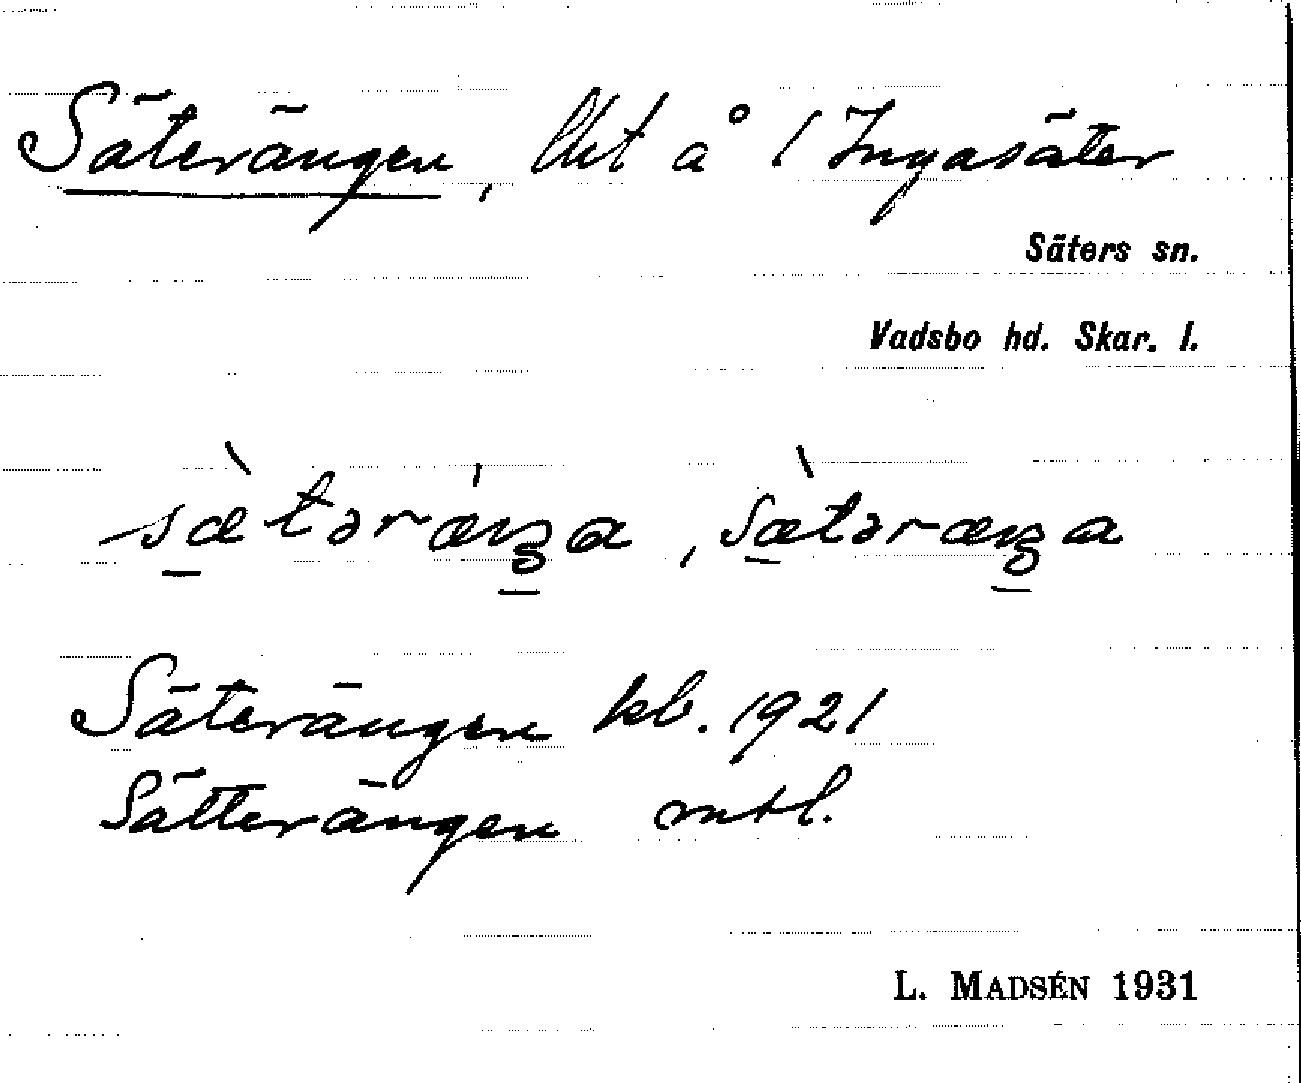 Säterängen, lht å 1 Ingasäter
Säters sn.
Vadsbo hd. Skar. l.
sæ̀təræ̍ŋa, sæ̀təræŋa
Säterängen kb. 1921
Sätterängen mtl.
L. MADSÉN 1931